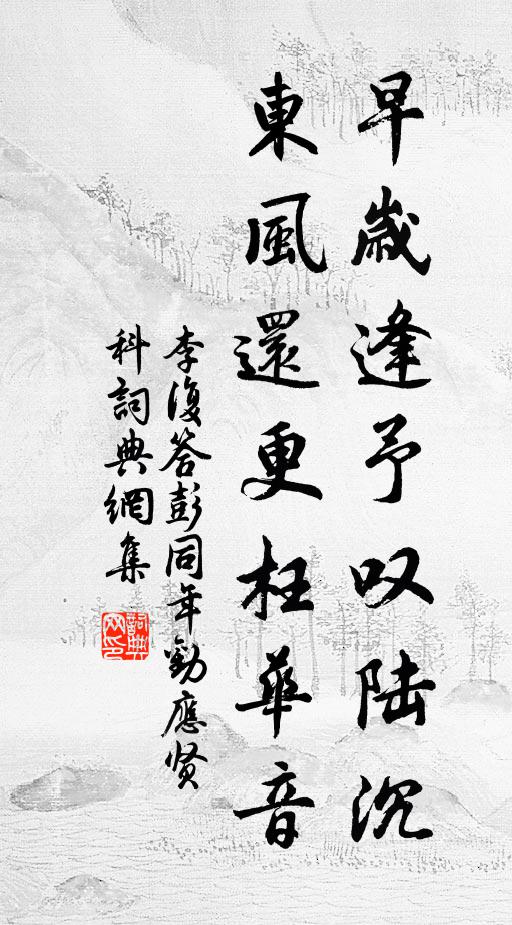 早歲逢予叹陆沉
東風還更枉華音
李復答彭同年勸應贤
科詞典網集
詞典网印